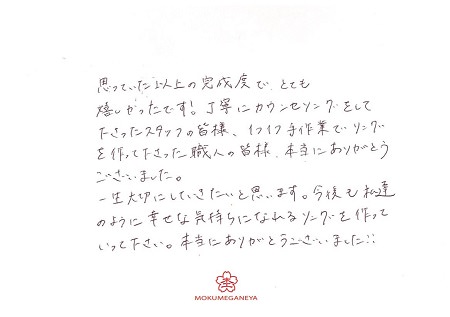 思っていた以上の完成度で、とても
嬉しかったです！丁寧にカウンセリングをして
下さったスタッフの皆様、1つ1つ手作業でリング
を作って下さった職人の皆様、本当にありがとう
ございました。
一生大切にしていきたいと思います。今後も私達
のように幸せな気持ちになれるリングを作って
いって下さい。本当にありがとうございました::
MOKUMEGANEYA